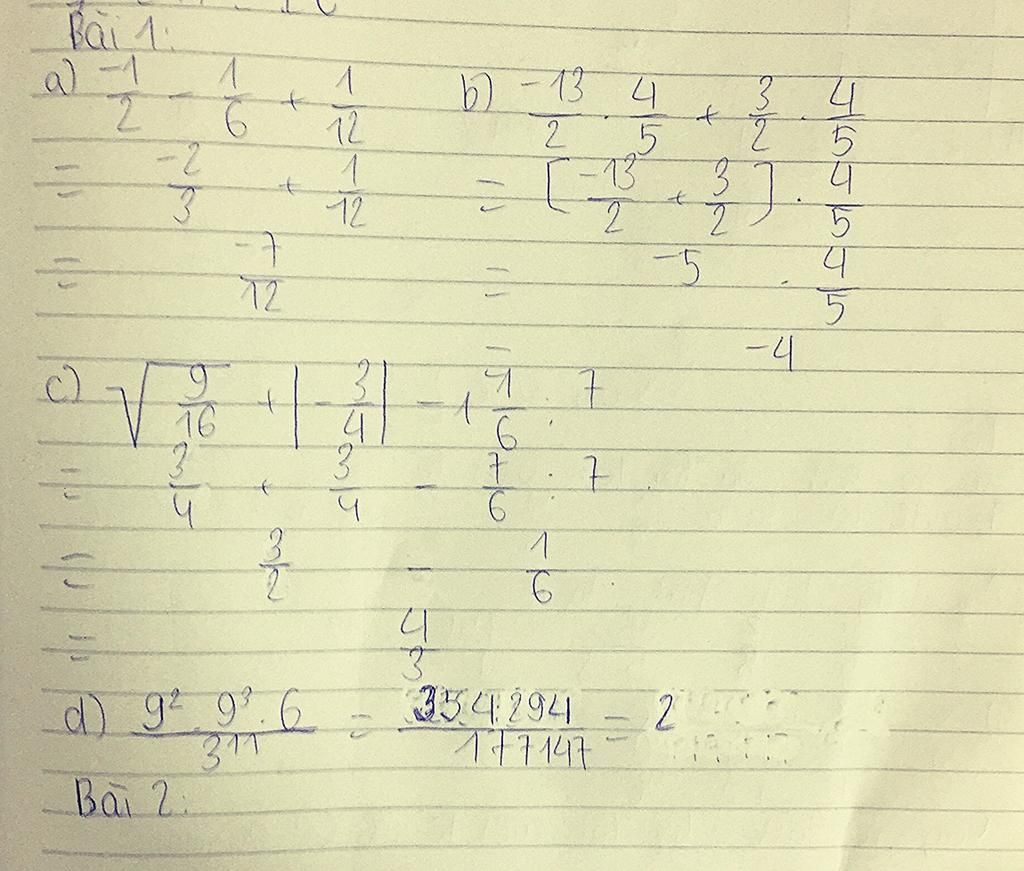 Bài 1:
a) -1/2 - 1/6 + 1/12
= -2/3 + 1/12
= -7/12
b) -13/2 . 4/5 + 3/2 . 4/5
= [-13/2 + 3/2] . 4/5
= -5 . 4/5
= -4
c) √(9/16) + |-3/4| - 1 1/6 : 7
= 3/4 + 3/4 - 7/6 : 7
= 3/2 - 1/6
= 4/3
d) (9² . 9³ . 6)/3¹¹ = 354294/177147 = 2
Bài 2: